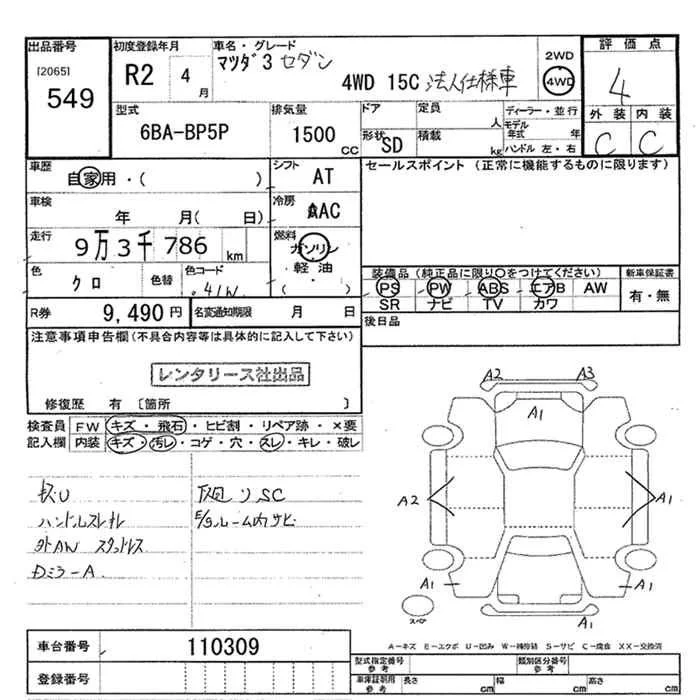 出品番号 初度登録年月 車名・グレード 2WD 評価点
[2065] 549 R2 4月 マツダ3 セダン 4WD 15C 法人仕様車 4WD 4
型式 排気量 ドア 定員 人 ディーラー・並行 外装 内装
6BA-BP5P 1500 CC 形状 SD 積載 kg モデル年式 年 ハンドル 左・右 C C
車歴 自家用・( ) シフト AT セールスポイント (正常に機能するものに限ります)
車検 年 月( 日) 冷房 AAC
走行 9万3千786 km 燃料 ガソリン
軽油
色 クロ 色替 色コード 41W ( ) 装備品 (純正品に限り○をつけてください) 新車保証書
PS PW ABS エアB AW 有・無
SR ナビ TV カワ
R券 9,490円 名変通知期限 月 日 後日品
注意事項申告欄(不具合内容等は具体的に記入して下さい)
レンタリース社出品
修復歴 有 [箇所 ]
検査員 FW キズ・飛石・ヒビ割・リペア跡・×要
記入欄 内装 キズ・汚レ・コゲ・穴・スレ・キレ・破レ
A2 A3
A1
下回りSC
ハンドルスレキレ E/gルーム内サビ
外AW スタッドレス
Dミラ-A
A2 A1
A1 A1
スペア A1
A-キズ E-エクボ U-凹み W-補修跡 S-サビ C-腐食 XX-交換済
車台番号 110309
型式指定番号 参考 類別区分番号 参考
登録番号 車庫証明用 参考 長さ cm 幅 cm 高さ cm